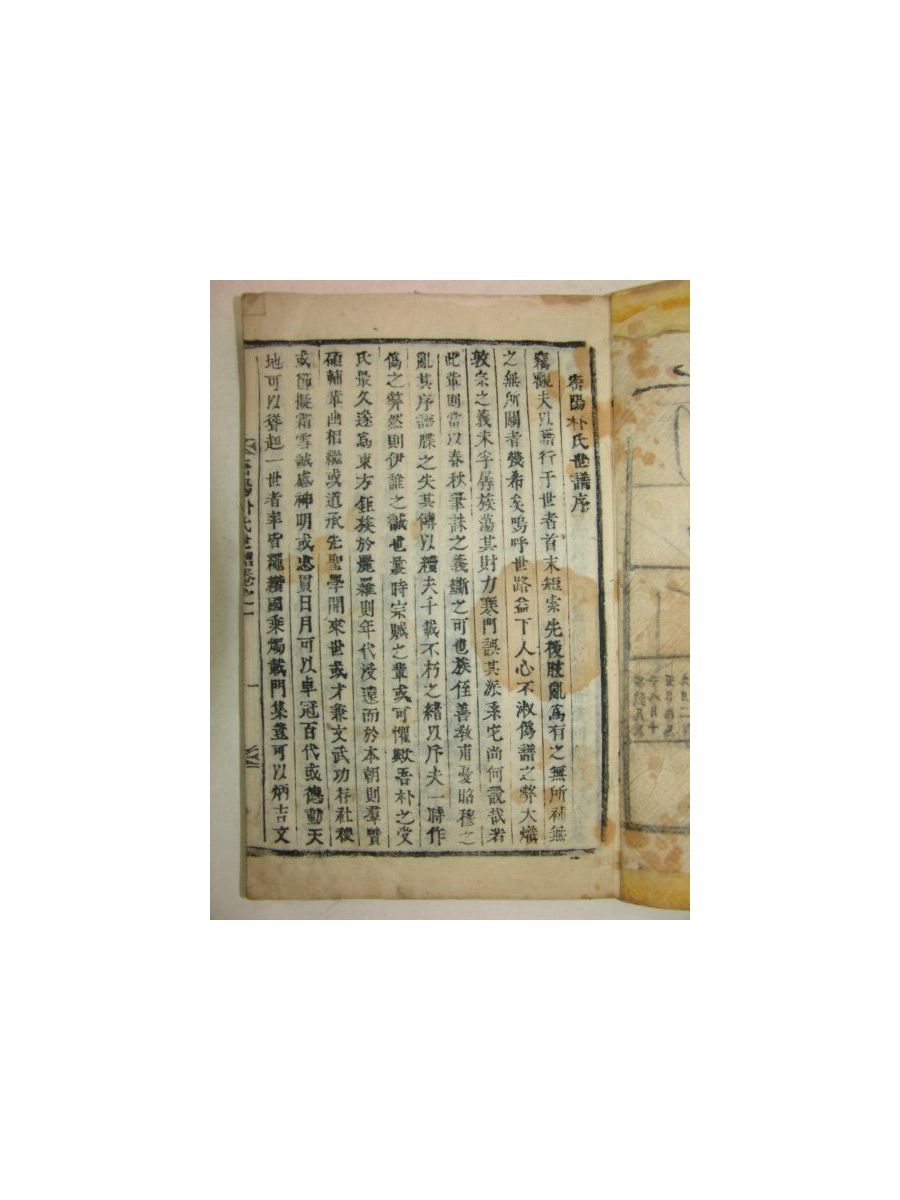 密陽朴氏世譜序
竊觀夫以譜行于世者首末短索先後肢亂爲有之無所補無
之無所關者幾希矣嗚呼世路益下人心不淑僞譜之弊大熾
敦宗之義未孚孱族蕩其財力寒門誤其派系宅尚何說哉若
此輩則當以春秋筆誅之義斷之可也族侄善敎甫憂昭穆之
亂其序譜牒之失其傳以積夫千載不朽之緖以斥夫一時作
僞之弊然則伊誰之誠也曩時宗賊之輩或可懼歟吾朴之受
氏最久遂爲東方鉅族於麗羅則年代浸遠而於本朝則羣賢
碩輔華冑相繼或道承先聖學開來世或才兼文武功存社稷
或節擬霜雪誠感神明或忠貫日月可以卓冠百代或德動天
地可以聳起一世者率皆 國乘燭載門集並可以炳吉文
密陽朴氏世譜卷之一
一